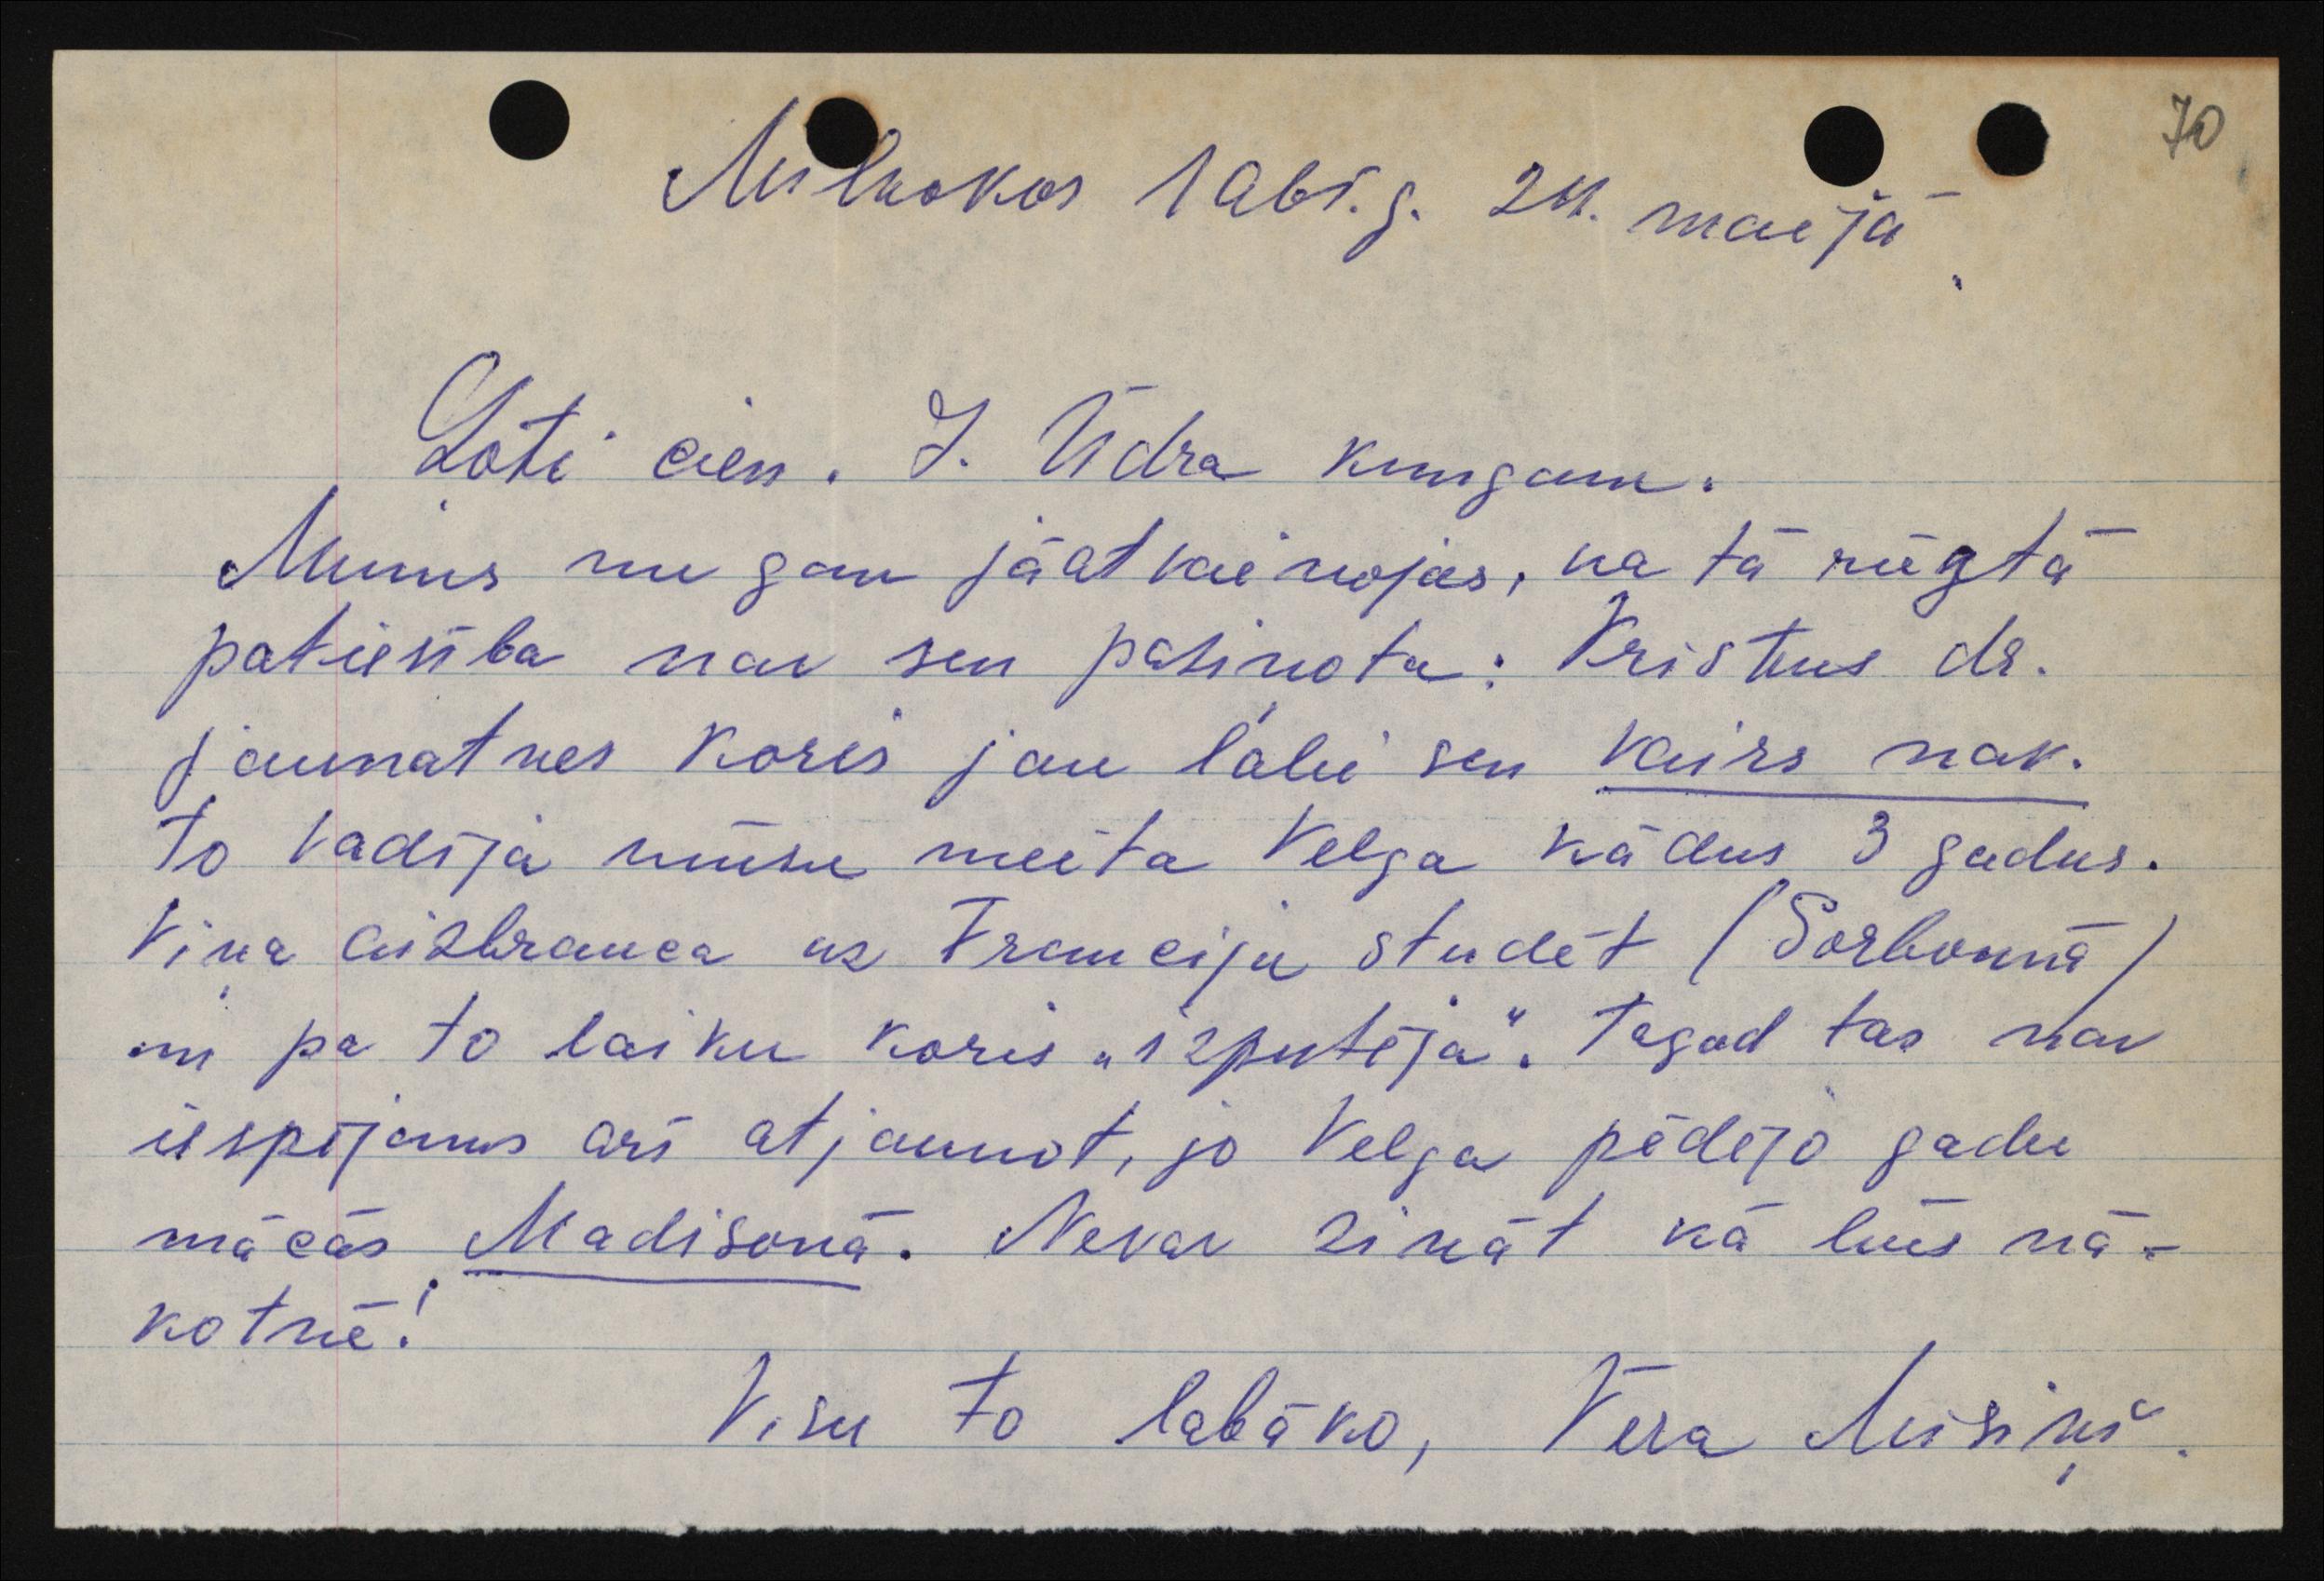 70
Milvokos 1965. g. 24. maijā.
Ļoti cien. J. Ūdra kungam.
Mums nu gan jāatvainojas, ka tā rūgtā
patiesība nav sen paziņota: Kristus dr.
jaunatnes koris jau labi sen vairs nav.
To vadīja mūsu meita Velga kādus 3 gadus.
Viņa aizbrauca uz Franciju studēt (Sorbonnā)
un pa to laiku koris „izputēja". Tagad tas nav
iespējams arī atjaunot, jo Velga pēdējo gadu
mācās Madisonā. Nevar zināt kā būs nā-
kotnē!
Visu to labāko, Vera Miziņš.